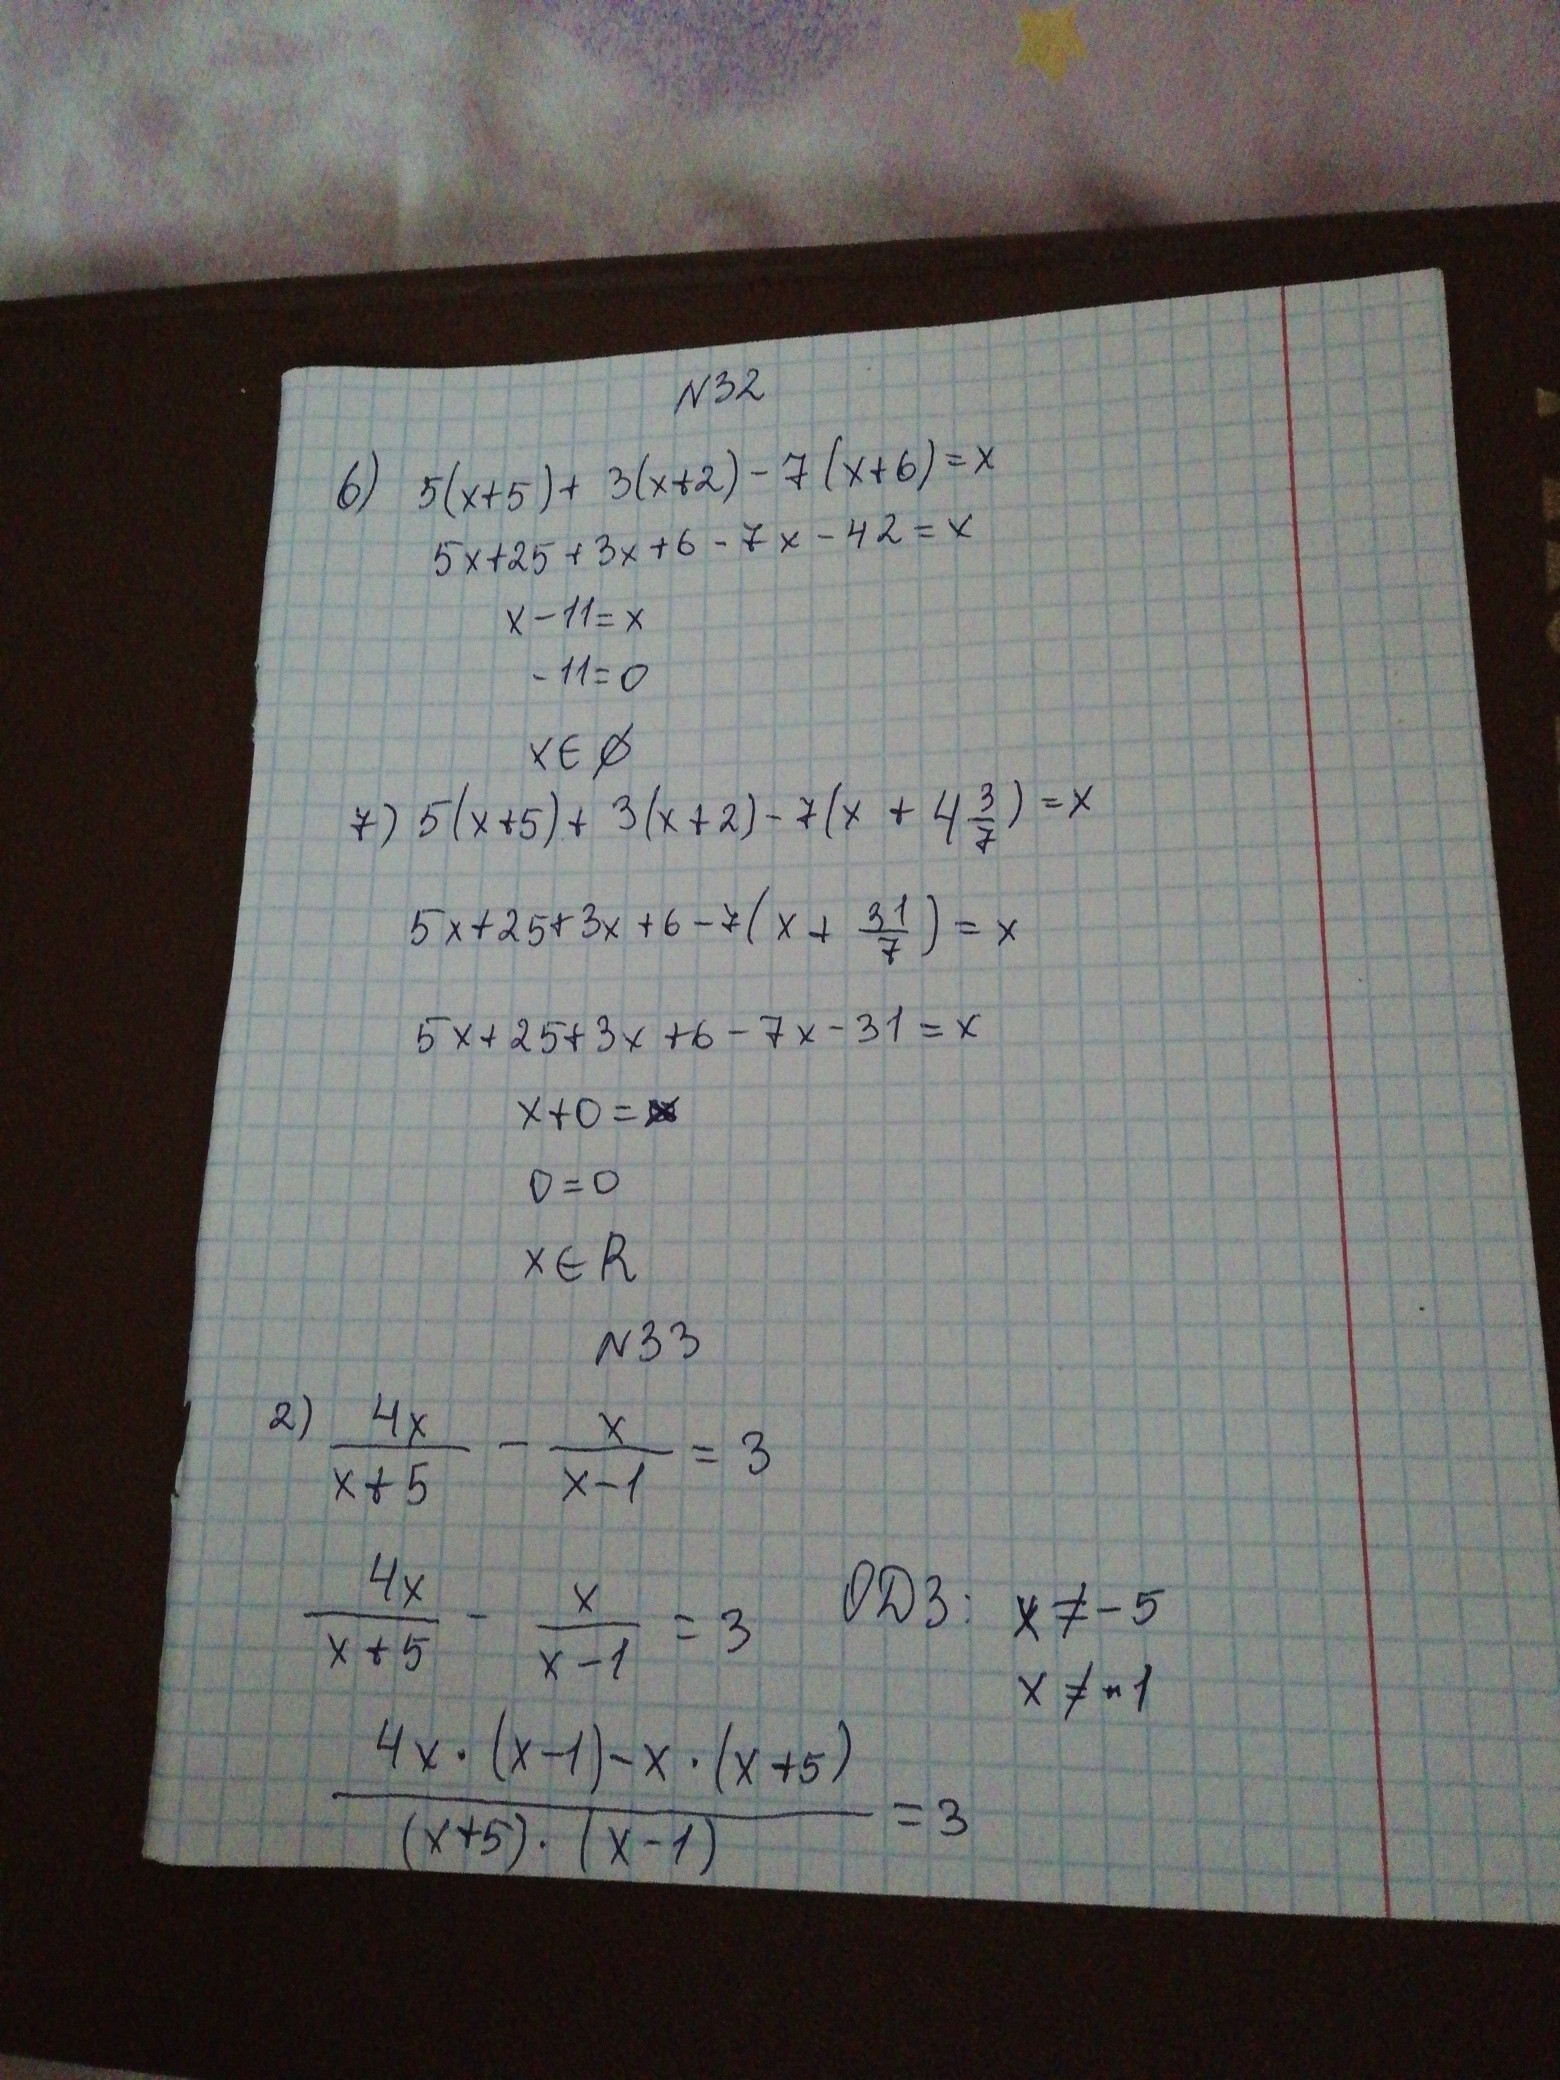 N32
6) 5(x+5)+ 3(x+2)-7(x+6)=x
5x+25+3x+6-7x-42=x
x-11=x
-11=0
x∈∅
7) 5(x+5)+ 3(x+2)-7(x + 4 3/7) =x
5x+25+3x+6-7(x+ 31/7) = x
5x+25+3x+6-7x-31=x
x+0=x
0=0
x∈R
N33
2) 4x/(x+5) - x/(x-1) = 3
4x/(x+5) - x/(x-1) = 3 ОДЗ: x≠-5
x≠-1
(4x·(x-1)-x·(x+5))/((x+5)·(x-1)) =3